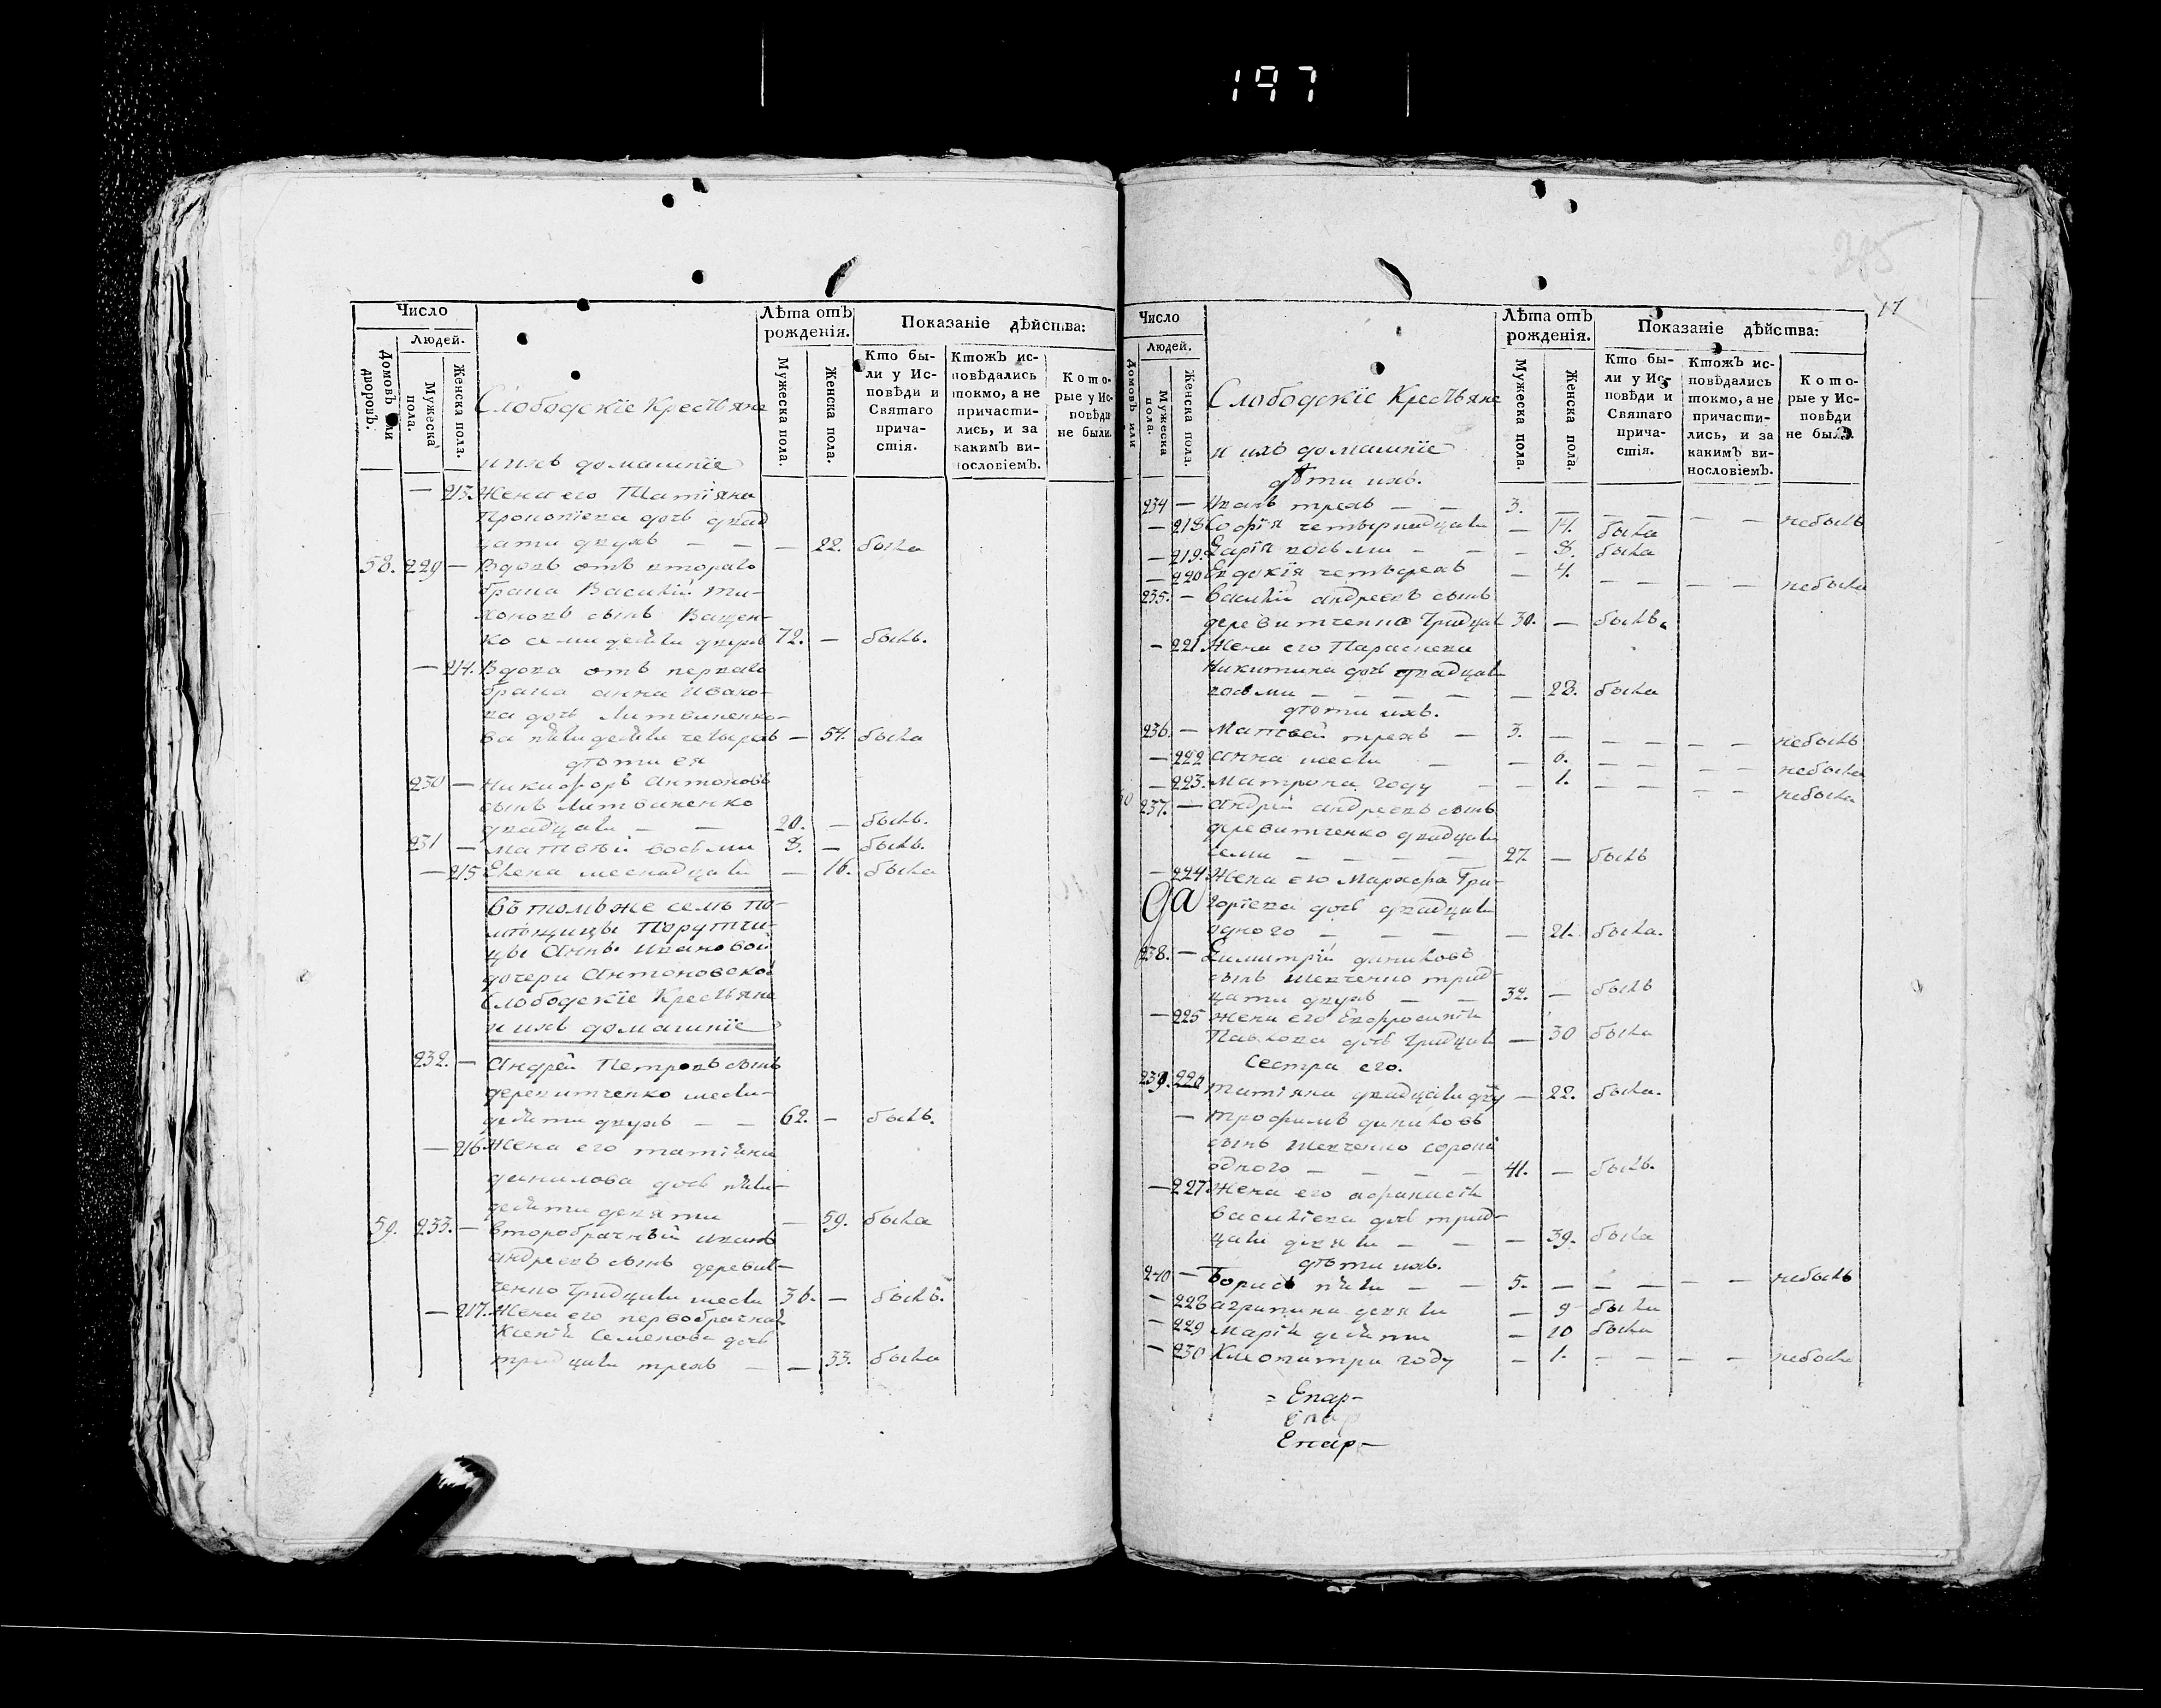 197
Число
Людей.
Домовъ или дворовъ.
Мужеска пола.
Женска пола.
Слободскїе Крестьяне
и ихъ домашнїе
Лѣта отъ рожденія.
Мужеска пола.
Женска пола.
Показаніе дѣйства:
Кто бы-
ли у Ис-
повѣди и
Святаго
прича-
стія.
Ктожъ ис-
повѣдались
токмо, а не
причасти-
лись, и за
какимъ ви-
нословіемъ.
Кото-
рые у Ис-
повѣди
не были.
— 213. Жена его Татїяна
Прокопїева дочь двад
цати двухъ — — — 22. была
58. 229 — Вдовъ отъ втораго
брака Василїй Ти-
хоновъ сынъ Ващен-
ко семидесяти двухъ 72. — былъ.
— 214. Вдова отъ перваго
брака анна Ивано-
ва дочь Литвиненко-
ва пятидесяти четырехъ — 54. была
дѣти ея
230 — Никифоръ Антоновъ
сынъ Литвиненко
двадцати — — 20. — былъ.
231 — Матвѣй восьми 8. — былъ.
— 215 Елена шеснадцати — 16. была
Въ томъ же селѣ По-
мѣщицы Порутчи-
цы Анны Ивановой
дочери Антоновской
Слободскїе Крестьяне
и ихъ домашнїе
232. — Андрей Петровъ сынъ
деревитченко шести-
десяти двухъ — — 62. — былъ.
— 216 Жена его татїяна
данилова дочь пяти-
десяти девяти — 59. была
59. 233. — Второбрачный иванъ
андреевъ сынъ деревит-
ченко тридцати шести 36. — былъ.
— 217. Жена его первобрачная
Ксенїя Семенова дочь
тридцати трехъ — — 33. была
17
Число
Людей.
Домовъ или
Мужеска пола.
Женска пола.
Слободскїе Крестьяне
и ихъ домашнїе
Лѣта отъ рожденія.
Мужеска пола.
Женска пола.
Показаніе дѣйства:
Кто бы-
ли у Ис-
повѣди и
Святаго
прича-
стія.
Ктожъ ис-
повѣдались
токмо, а не
причасти-
лись, и за
какимъ ви-
нословіемъ.
Кото-
рые у Ис-
повѣди
не были.
дѣти ихъ.
234 — Иванъ трехъ — — 3. — — — — — небылъ
— 218 Софїя четырнадцати — 14. была
— 219. Дарїя восьми — — — 8. была
— 220 Евдокїя четырехъ — 4. — — — — небыла
235. — Василїй андреевъ сынъ
деревитченко тридцат 30. — былъ.
— 221 Жена его Параскева
Никитина дочь двадцати
восьми — — — — — 28. была
дѣти ихъ.
236. — Матвей трехъ — 3. — — — — — небылъ
— 222 анна шести — — 6. — — — — небыла
— 223. Матрона году — — 1. — — — — небыла
237. — андрей андреевъ сынъ
деревитченко двадцати
семи — — — — 27. — былъ
— 224 Жена его Марѳа Гри-
горїева дочь двадцати
одного — — — — 21. была.
238. — Димитрїй даниловъ
сынъ Шевченко трид-
цати двухъ — — 32. — былъ
— 225 Жена его Евфросинїя
Павлова дочь тридцати — 30 была
Сестра его.
239. 226 татїяна двадцати дву — 22. была.
— трофимъ даниловъ
сынъ Шевченко сорока
одного — — — — 41. — былъ.
— 227 Жена его афанасїя
василїева дочь трид-
цати девяти — — — 39. была
дѣти ихъ.
240 — Борисъ пяти — — 5. — — — — — небылъ
— 228 агрипина девяти — 9 была
— 229 Марїя десяти — 10 была
— 230 Клеопатра году — 1. — — — — небыла
= Епар-
Епар
Епар-